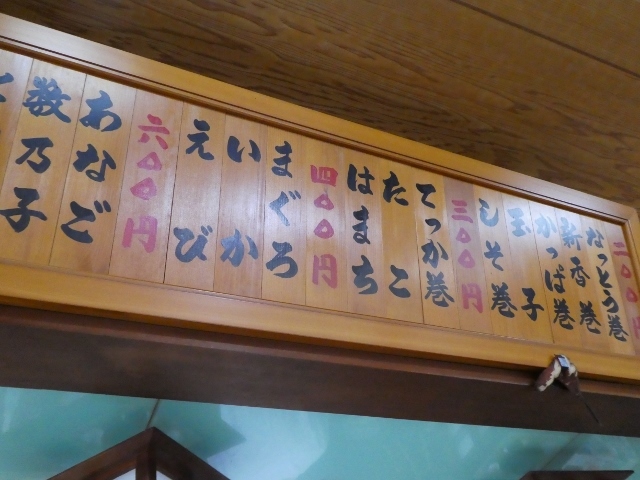 二〇〇円
なっとう巻
新香巻
かっぱ巻
玉子
しそ巻
三〇〇円
てっか巻
たこ
はまち
四〇〇円
まぐろ
いか
えび
六〇〇円
あなご
数乃子